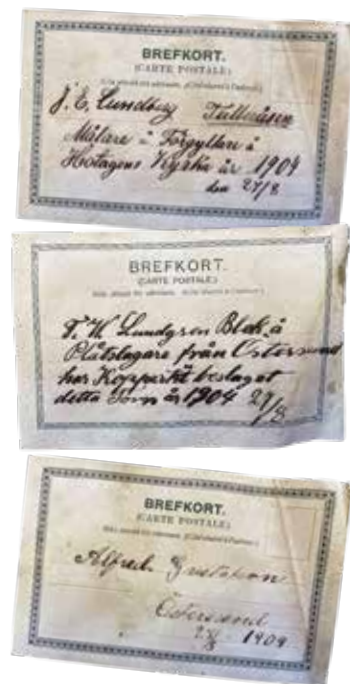 BREFKORT.
(CARTE POSTALE)
J. E. Lundberg Tulleråsen
Målare & Förgyllare i
Hotagens Kyrka år 1904
den 27/8
BREFKORT.
(CARTE POSTALE)
F. W. Lundgren Bleck &
Plåtslagare från Östersund
har Kopparkt beslaget
detta Torn år 1904 27/8
BREFKORT.
(CARTE POSTALE)
Alfred Gustafson
Östersund
27/8 1904